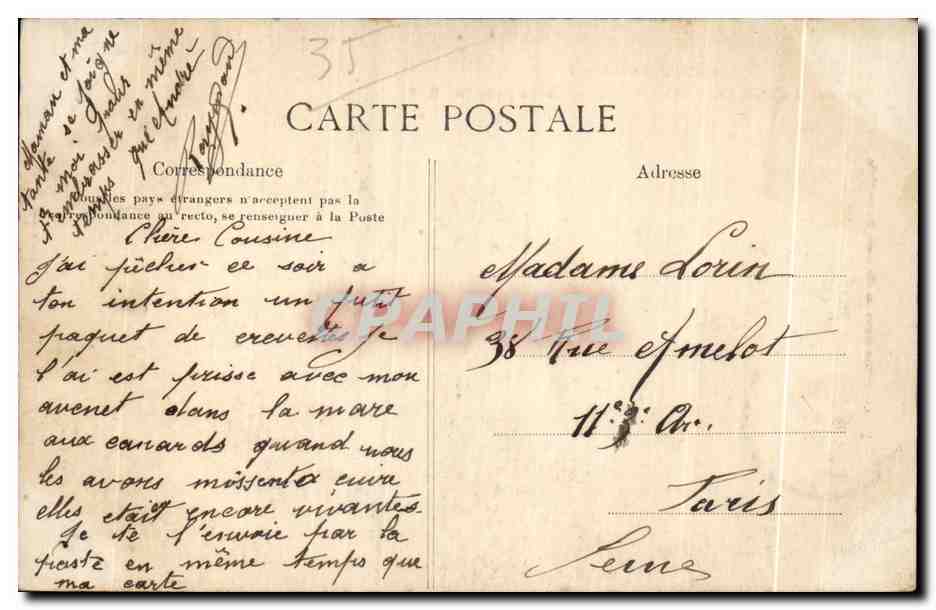 35
CARTE POSTALE
Correspondance
Tous les pays étrangers n'acceptent pas la
correspondance au recto, se renseigner à la Poste
Adresse
Chère Cousine
J'ai pêcher ce soir a
ton intention un petit
paquet de crevettes Je
l'ai est prisse avec mon
avenet dans la mare
aux canards quand nous
les avons mis cuire
elles etait encore vivantes
Je te l'envoie par la
poste en même temps que
ma carte
Maman et ma
tante se soigne
moi
t'embrasser en même
temps que André
Madame Lorin
38 Rue Amelot
11e Ar.
Paris
Seine
CPAPHIL